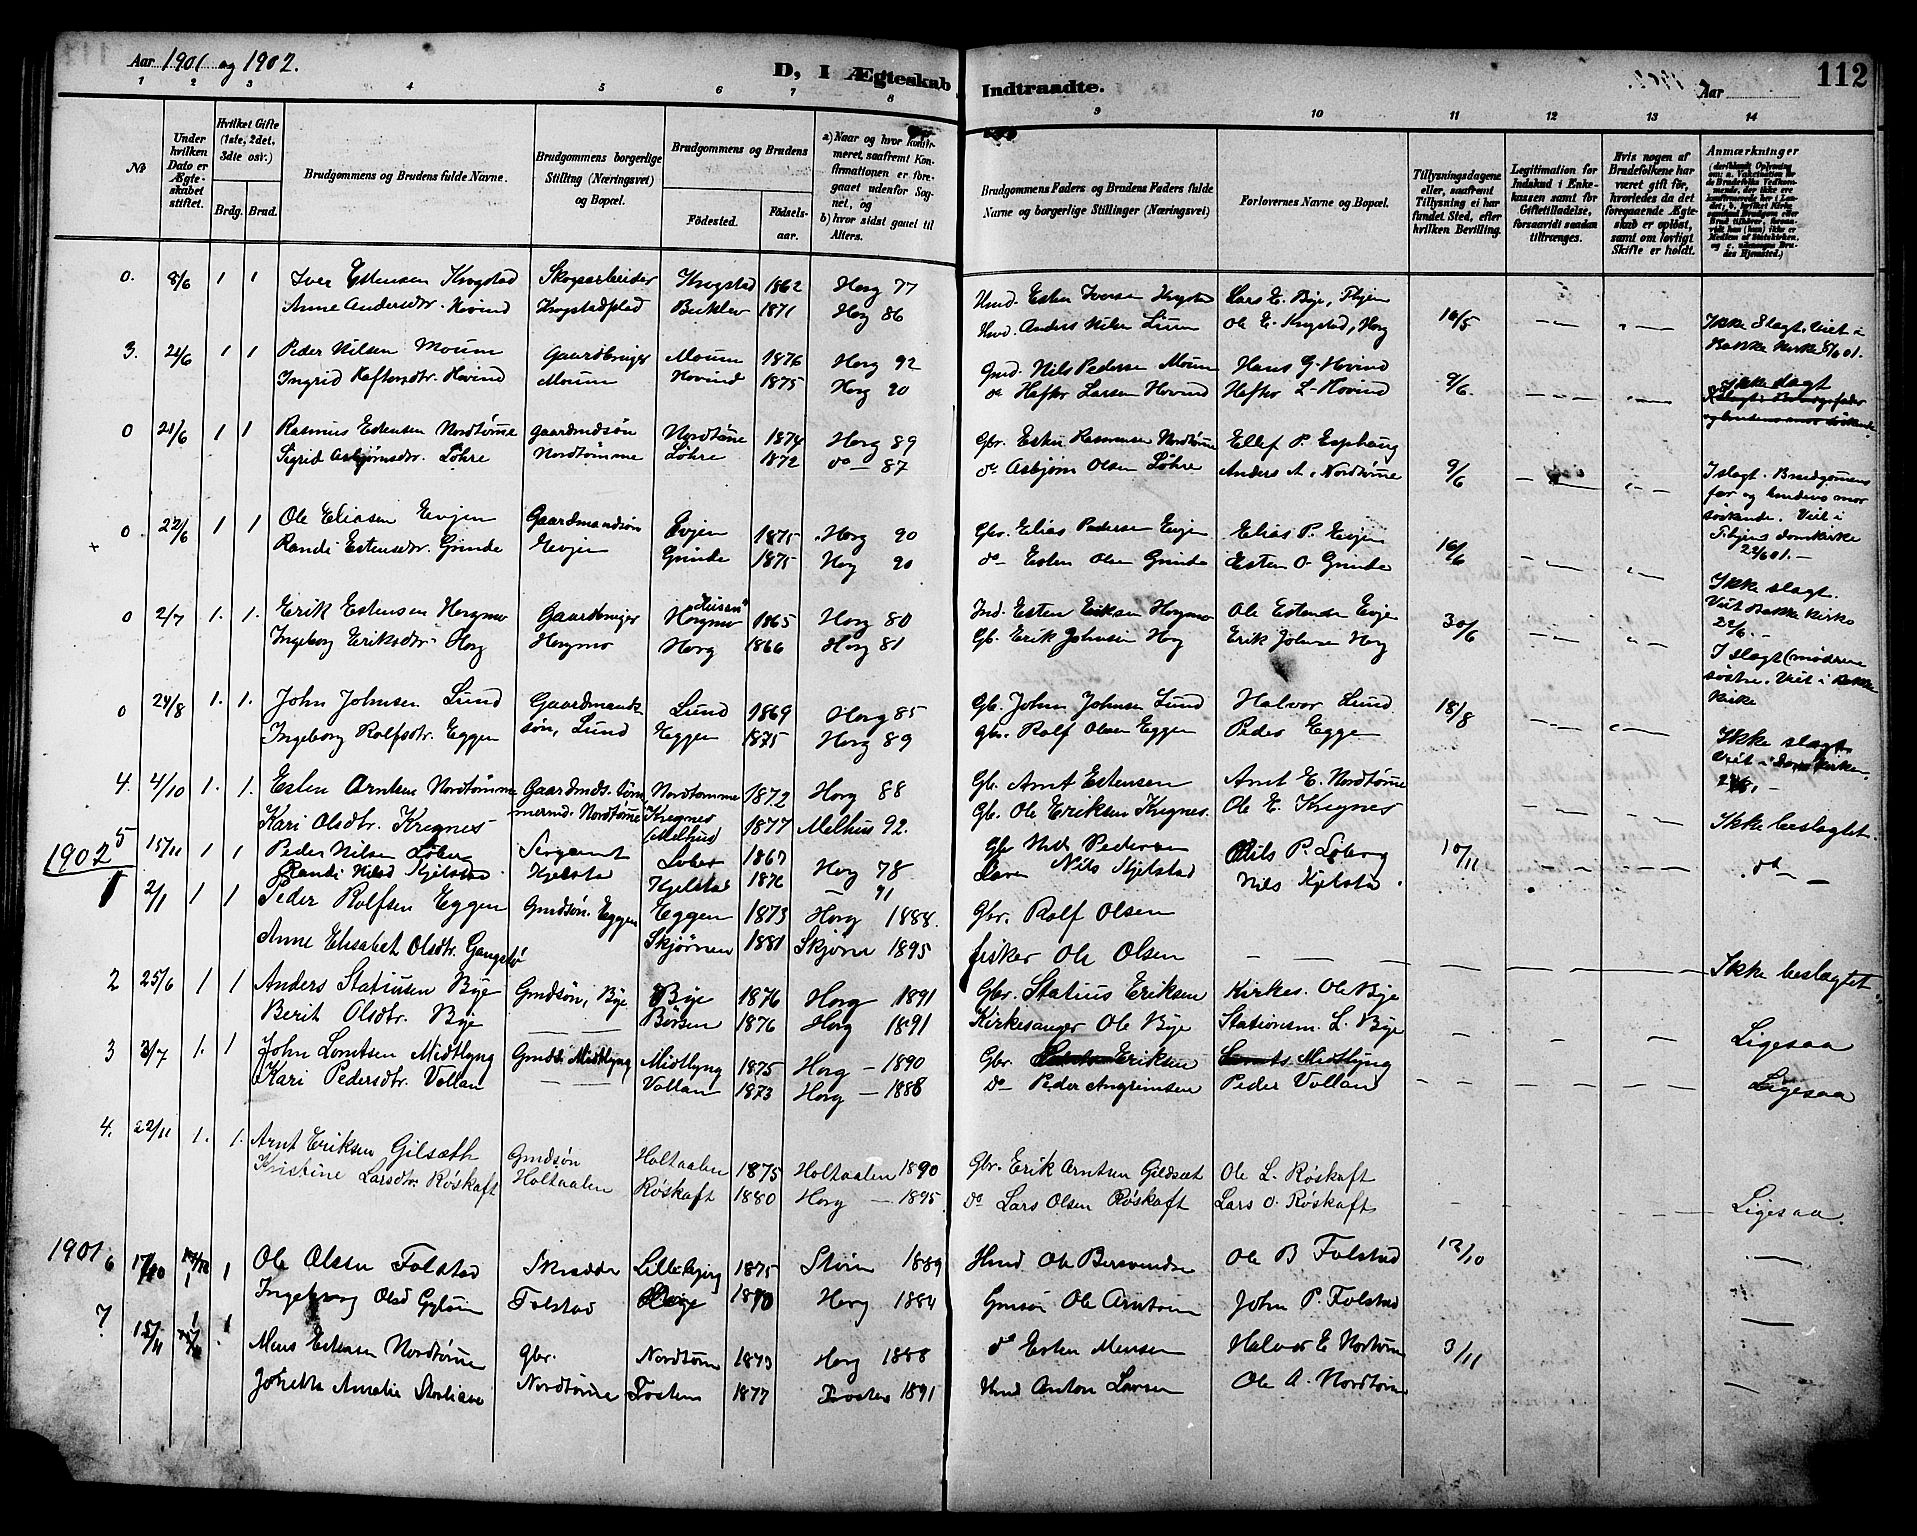 Aar 1901 og 1902.
D, I Ægteskab Indtraadte.
1902. Aar
112
1 2 3 4 5 6 7 8 9 10 11 12 13 14
No
Under hvilken Dato er Ægteskabet stiftet.
Hvilket Gifte (1ste, 2det, 3die osv.)
Brdg. Brud.
Brudgommens og Brudens fulde Navne.
Brudgommens borgerlige Stilling (Næringsvei) og Bopæl.
Brudgommens og Brudens
Fødested. Fødselsaar.
a) Naar og hvor konfirmeret, saafremt Konfirmationen er foregaaet udenfor Sognet, og
b) hvor sidst gaaet til Alters.
Brudgommens Faders og Brudens Faders fulde Navne og borgerlige Stillinger (Næringsvei)
Forlovernes Navne og Bopæl.
Tillysningsdagene eller, saafremt Tillysning ei har fundet Sted, efter hvilken Bevilling.
Legitimation for Indskud i Enkekassen samt for Giftetilladelse, forsaavidt saadan tiltrænges.
Hvis nogen af Brudefolkene har været gift før, hvorledes da det foregaaende Ægteskab er opløst, samt om lovligt Skifte er holdt.
Anmærkninger
0. 8/6 1 1 Iver Estensen Krogstad Skogsarbeider Krogstad 1862 Horg 77 Hmd. Esten Iversen Krogstad Lars E. Bye, Flyen
Anne Andersdtr. Hovind Krogstadplad 1871 Horg 86 Hmd. Anders Nilsen Ole E. Krogstad, Horg 16/5 Ikke Slagt. Viet i Bakke Kirke 8/6 01.
3. 21/6 1 1 Peder Nilsen Moum Gaardbruger Moum 1876 Horg 92 Gmd. Nils Pedersen Moum Hans G. Hovind
Ingrid Haftorsdtr. Hovind Moum Hovind 1875 Horg 90 do Haftor Larsen Hovind Haftor L. Hovind 9/6. Ikke slagt
0 21/6 1 1 Rasmus Estensen Nordtømme Gaardmdsøn Nordtømme 1874 Horg 89 Gbr. Esten Rasmussen Nordtømme Ellef P. Esphaug
Sigrid Asbjørnsdr. Løhre Nordtømme Løhre 1872 do - 87 do Asbjørn Olsen Løhre Anders A. Nordtømme 9/6 I slagt. Brudgomens far og hendes mor søskende. Viet i Thjems domkirke 22/6 01.-
0 22/6 1 1 Ole Eliasen Evjen Gaardmandsøn Evjen 1875 Horg 90 Gbr. Elias Pedersen Evjen Elias P. Evjen
Randi Estensdr. Grinde Evjen Grinde 1875 Horg 90 do Esten Olsen Grinde Esten O. Grinde 16/6 Ikke slagt. Viet Bakke kirke 22/6.-
0 2/7 1. 1. Erik Estensen Horgmo Gaardbruger Horgmo 1865 Horg 80 Ind. Esten Eriksen Horgmo Ole Estensen Evje
Ingeborg Eriksdr. Horg Horgmo Horg 1866 Horg 81 Gb. Erik Johnsen Horg Erik Johnsen Horg 30/6 I slagt (mødrene søstre. Viet i Bakke kirke
0 24/8 1. 1. John Johnsen Lund Gaardmands Lund 1869 Horg 85 Gb. John Johnsen Lund Halvor Lund
Ingeborg Rolfsdtr. Eggen søn, Lund Eggen 1875 Horg 89 Gbr. Rolf Olsen Eggen Peder Egge 18/8 Ikke slagt. Viet i Domkirken
4. 4/10 1. 1. Esten Arntsen Nordtømme Gaardmds. søn Nordtømme 1872 Horg 88 Gb. Arnt Estensen Arnt E. Nordtømme
Kari Olsdtr. Kregnes Nordtømme Kregnes (Melhus) 1877 Melhus 92. Gb. Ole Eriksen Kregnes. Ole E. Kregnes Ikke beslagtet.
5 15/11 1 1 Peder Nilsen Løberg Sergeant Løber 1863 Horg 78 Gbr Nils Pedersen Nils P. Løberg 10/11 do
Randi Nilsd Kjelstad Kjelsta Kjelstad 1876 - 91 Nils Kjelstad Nils Kjelsta
1902
1 2/1 1 1 Peder Rolfsen Eggen Gmdsøn. Eggen Eggen 1873 Horg 1888. Gbr. Rolf Olsen
Anne Elisabet Olsdtr. Gangstø Skjørnen 1881 Skjørn 1895 fisker Ole Olsen Ikke beslagtet
2 25/6 1 1 Anders Statiusen Bye Gmdsøn, Bye Bye 1876 Horg 1891 Gbr. Statius Eriksen Kirkes. Ole Bye
Berit Olsdtr. Bye Børsen 1876 Horg 1891 Kirkesanger Ole Bye Stationsm. L. Bye Ligesaa
3 3/7 1. 1 John Lorntsen Midtlyng Gmds. Midtlyng Midtlyng 1875 Horg - 1890 Gbr Eriksen Midtlyng
Kari Pedersdtr. Vollan Vollan 1873 Horg - 1888 do Peder Angrimsen Peder Vollan Ligesaa
4. 22/11 1. 1. Arnt Eriksen Gilsæth Gmdsøn Holtaalen 1875 Holtaalen 1890 Gbr. Erik Arntsen Gildsæt Ole L. Røskaft
Kristine Larsdtr. Røskaft Holtaalen Røskaft 1880 Horg - 1895 do Lars Olsen Røskaft Lars O. Røskaft Ligesaa.
1901
6 17/10 1 1 Ole Olsen Folstad Skredder Lillebjerg 1875 Støren 1889 Hmd Ole Ole B Folstad 13/10
Ingeborg Olsd Folstad 1870 Horg 1884 Ole Arntsen John P. Folstad
7 15/11 1 1 Mens Estensen Nordtømme Gbr. Nordtømm 1873 Horg 1888 do Esten Mensen Halvor E Nordtøm 3/11
Amalie Nordtømme Fosten 1877 Fosten 1891 Hmd Anton Larsen Ole A. Nordtøm